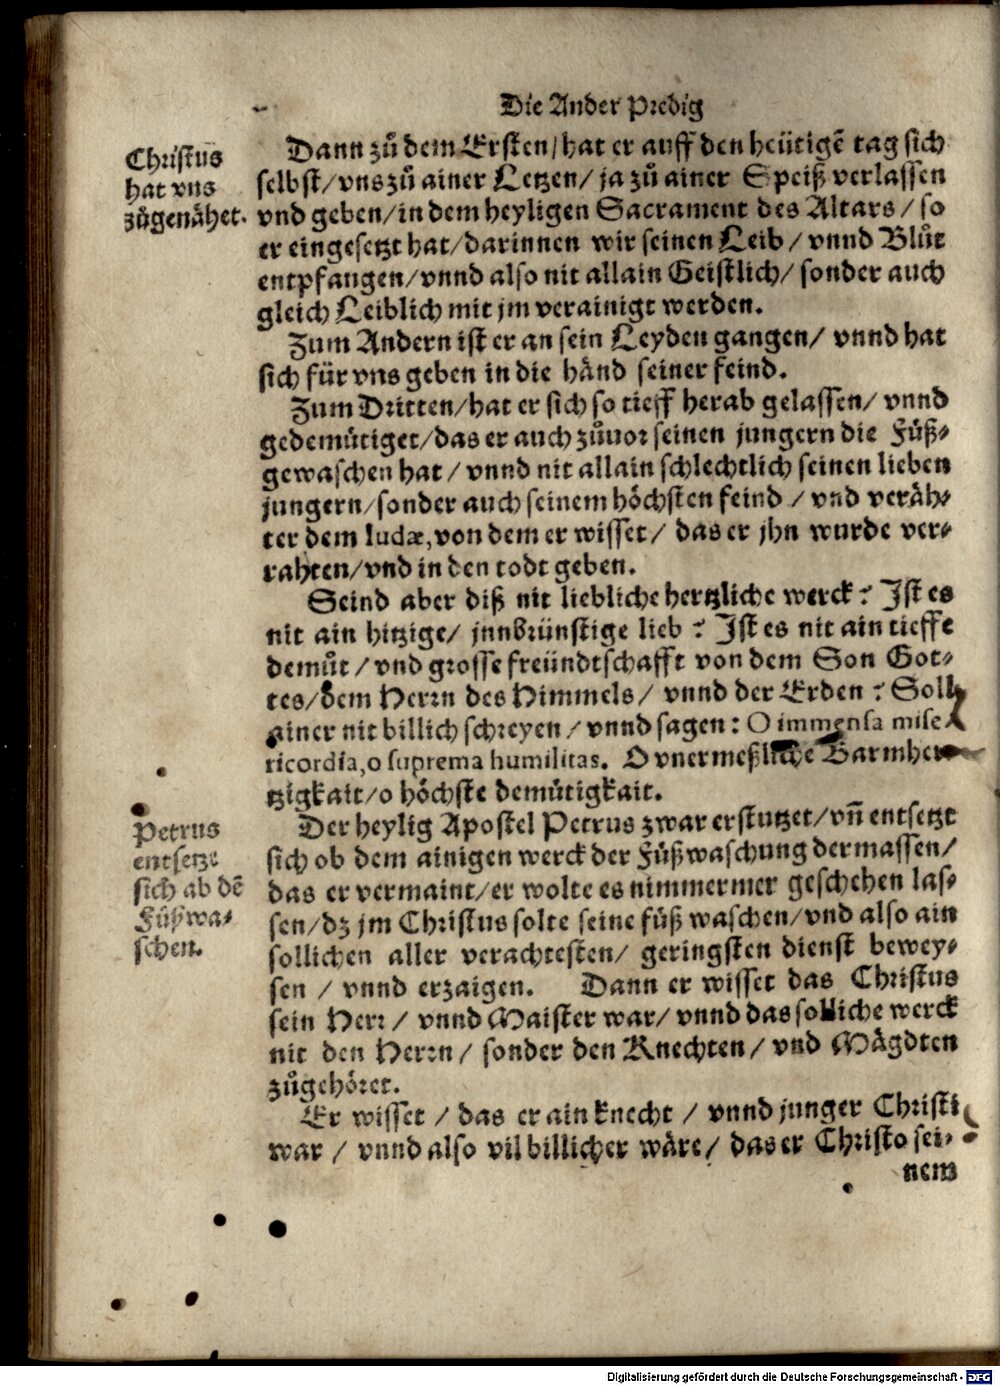 Die Ander Predig
Christus
hat vns
zůgenähet.
Dann zů dem Ersten / hat er auff den heütigẽ tag sich
selbst / vns zů ainer Letzen / ja zů ainer Speiß verlassen
vnd geben / in dem heyligen Sacrament des Altars / so
er eingesetzt hat / darinnen wir seinen Leib / vnnd Blůt
entpfangen / vnnd also nit allain Geistlich / sonder auch
gleich Leiblich mit jm verainigt werden.
Zum Andern ist er an sein Leyden gangen / vnnd hat
sich für vns geben in die händ seiner feind.
Zum Dritten / hat er sich so tieff herab gelassen / vnnd
gedemütiget / das er auch zůuor seinen jungern die Füß-
gewaschen hat / vnnd nit allain schlechtlich seinen lieben
jungern / sonder auch seinem höchsten feind / vnd veräh-
ter dem Iudæ, von dem er wisset / das er jhn wurde ver-
rahten / vnd in den todt geben.
Seind aber diß nit liebliche hertzliche werck? Ist es
nit ain hitzige / jnnbrünstige lieb? Ist es nit ain tieffe
demůt / vnd grosse freündtschafft von dem Son Got-
tes / dem Herrn des Himmels / vnnd der Erden? Soll
ainer nit billich schreyen / vnnd sagen: O immensa mise
ricordia, o suprema humilitas. O vnermeßliche Barmher
tzigkait / o höchste demütigkait.
Petrus
entsetzt
sich ab dẽ
Füßwa-
schen.
Der heylig Apostel Petrus zwar erstutzet / vñ entsetzt
sich ob dem ainigen werck der Füßwaschung dermassen /
das er vermaint / er wolte es nimmermer geschehen las-
sen / dz jm Christus solte seine füß waschen / vnd also ain
sollichen aller verachtesten / geringsten dienst bewey-
sen / vnnd erzaigen. Dann er wisset das Christus
sein Herr / vnnd Maister war / vnnd das solliche werck
nit den Herrn / sonder den Knechten / vnd Mägdten
zůgehöret.
Er wisset / das er ain knecht / vnnd junger Christi
war / vnnd also vil billicher wäre / das er Christo sei-
nem
Digitalisierung gefördert durch die Deutsche Forschungsgemeinschaft - DFG